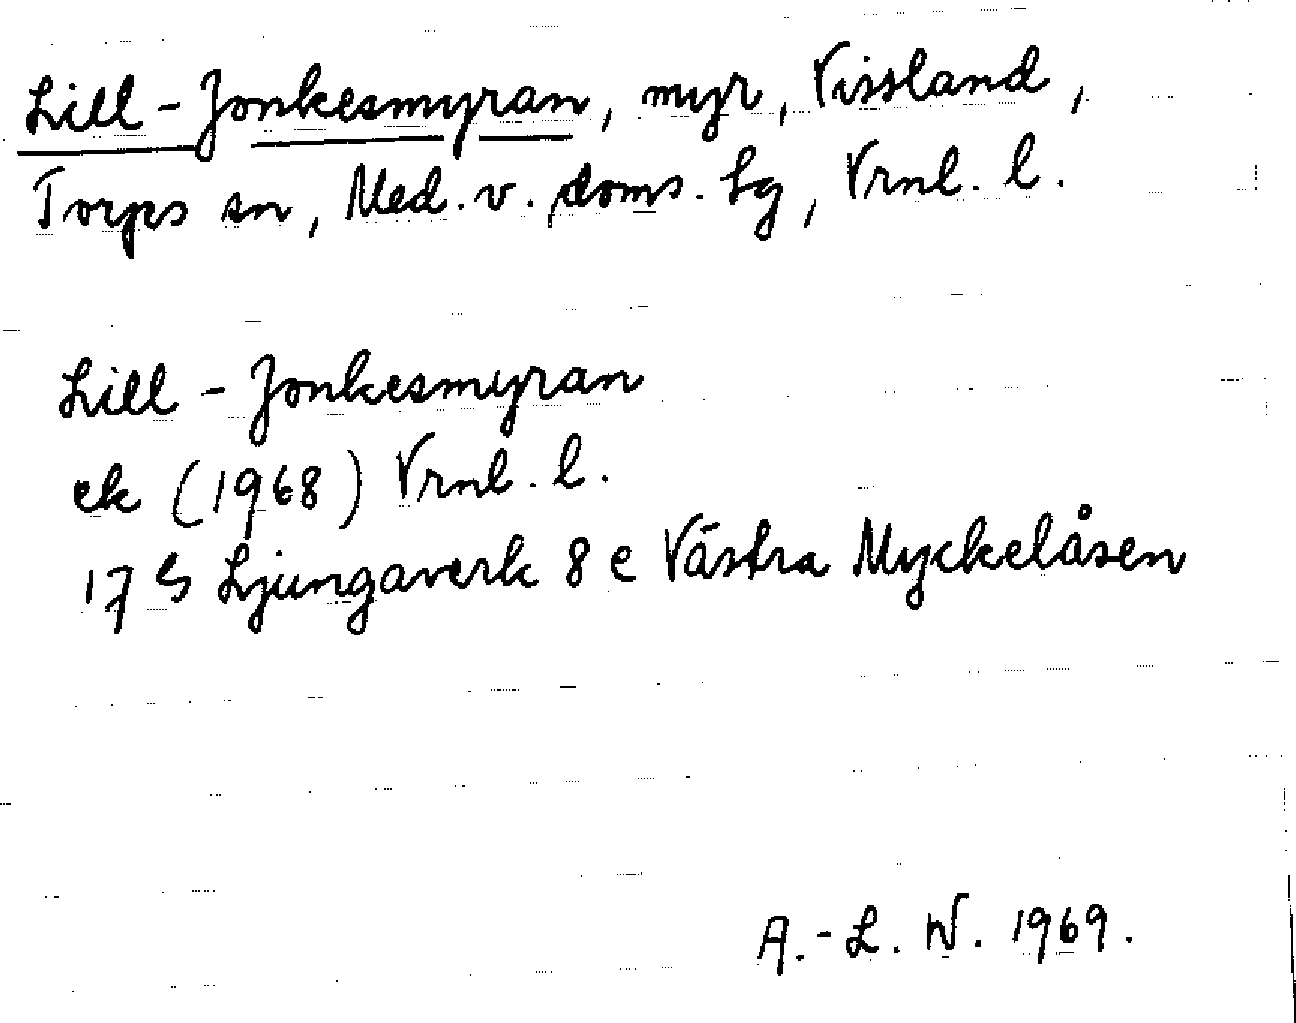 Lill-Jonkesmyran, myr, Vissland,
Torps sn, Med. v. doms. lg, Vrnl. l.
Lill-Jonkesmyran
ek (1968) Vrnl. l.
17 S Ljungaverk 8 e Västra Myckelåsen
A.-L. W. 1969.